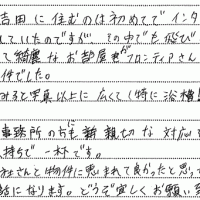 吉田に住むのは初めてでインタ
していたのですが、その中でも飛び
て綺麗なお部屋がフロンティアさん
件でした。
みると写真以上に広くて(特に浴槽
事務所の方も親切な対応
気持ちで一杯です。
社さんと物件に恵まれて良かったと思っ
話になります。どうぞ宜しくお願い致